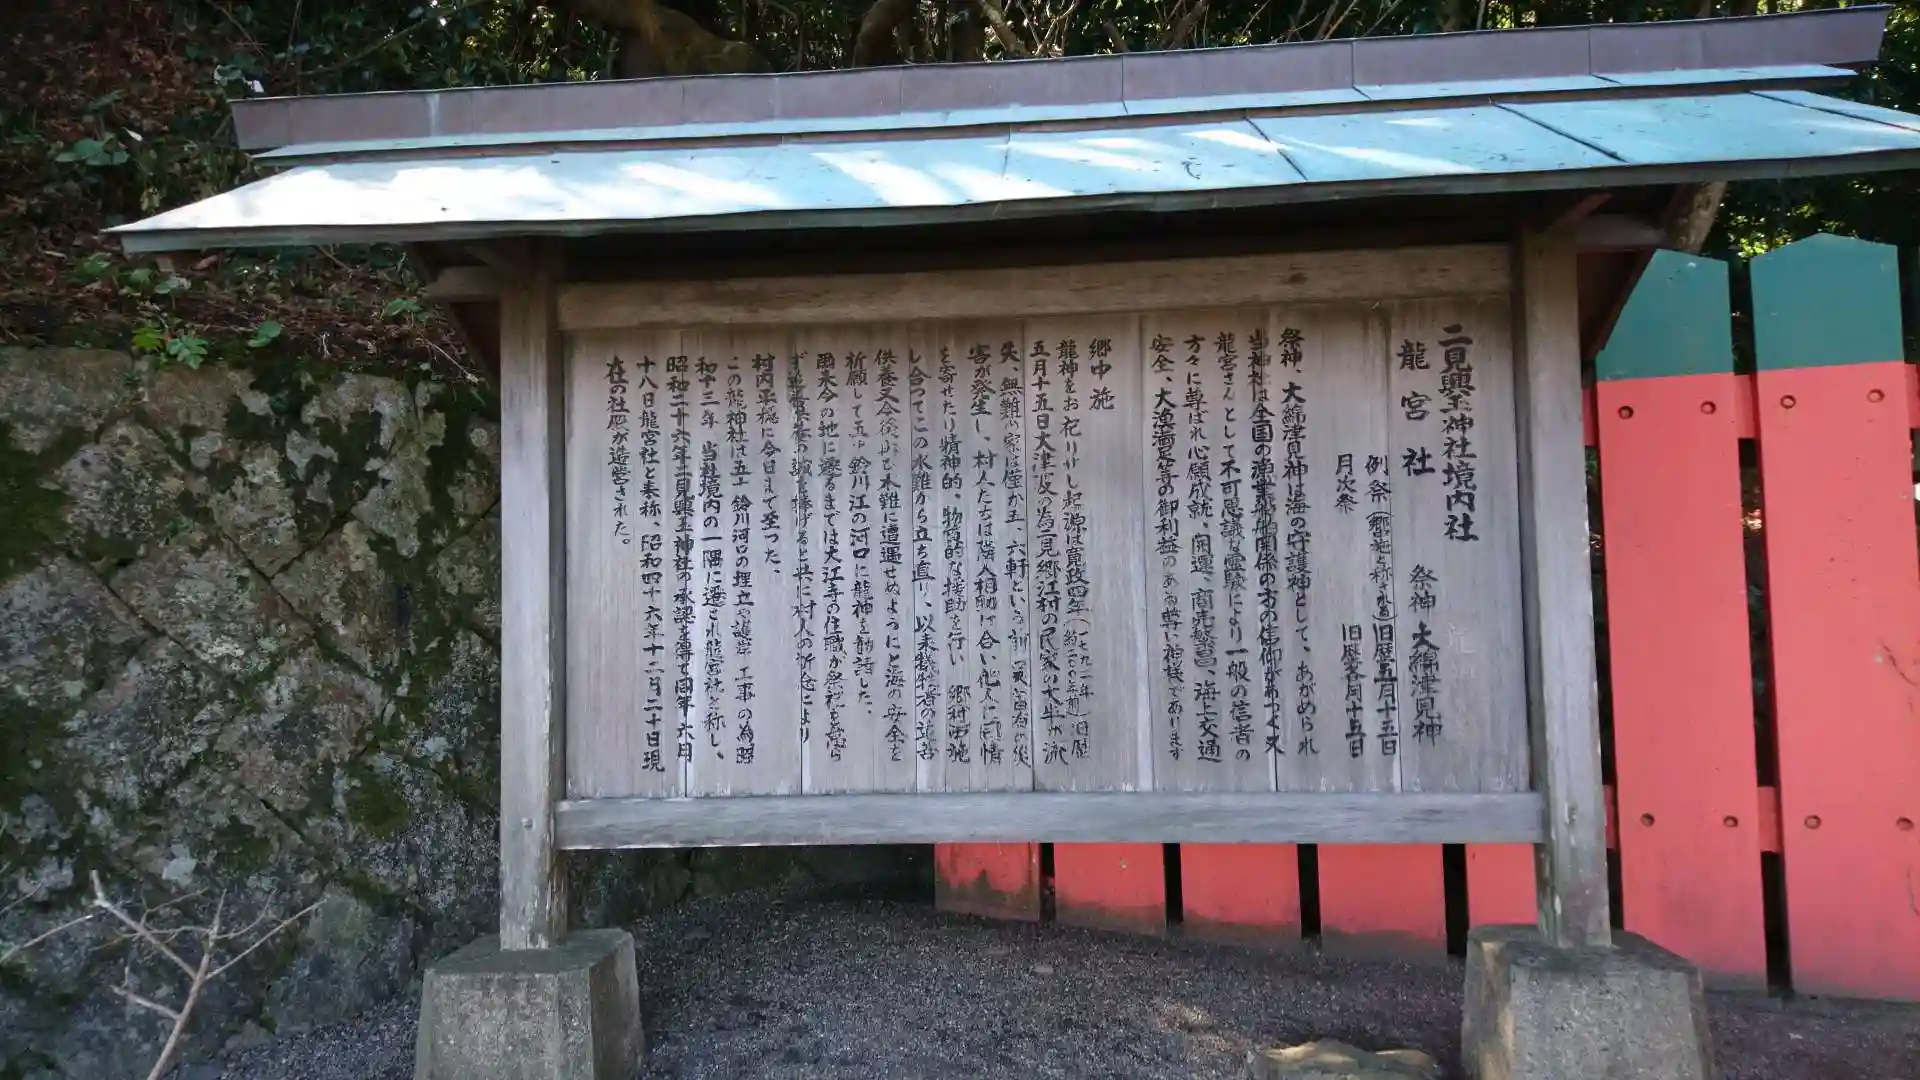 二見興玉神社境内社
龍宮社　祭神　大綿津見神
例祭（郷中施と称される）旧歴五月十五日
月次祭　旧歴各月十五日
祭神、大綿津見神は海の守護神として、あがめられ
当神社は全国の漁業船舶関係の方の信仰があつく又
龍宮さんとして不可思議な霊験により一般の信者の
方々に尊ばれ心願成就、開運、商売繁昌、海上交通
安全、大漁満足等の御利益のある尊い神様であります
郷中施
龍神をお祀りし起源は寛政四年（一七九二年）（約二〇〇年前）旧歴
五月十五日大津波の為二見郷江村の民家の大半が流
失、無難の家は僅か五、六軒という
害が発生し、村人たちは隣人相助け合い他人に同情
を寄せたり精神的、物質的な援助を行い　郷村西施
し合つてこの水難から立ち直り、以来犠牲者の
供養又今後再び水難に遭遇せぬようにと海の安全を
祈願して五十鈴川江の河口に龍神を勧請した、
爾来今の地に遷るまでは大江寺の住職が祭祀を
を捧げると共に村人の祈念により
村内平穏に今日まで至つた、
この龍神社は五十鈴川河口の埋立や護岸工事の為昭
和十三年　当社境内の一隅に遷され龍宮社と称し、
昭和二十六年二見興玉神社の承認を得て同年六月
十八日龍宮社と奉称、昭和四十六年十二月二十日現
在の社殿が造営された。